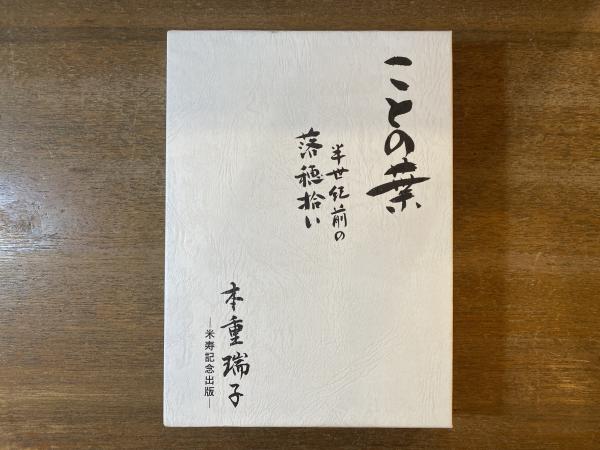 ことの葉
半世紀前の
落穂拾い
本重瑞子
―米寿記念出版―